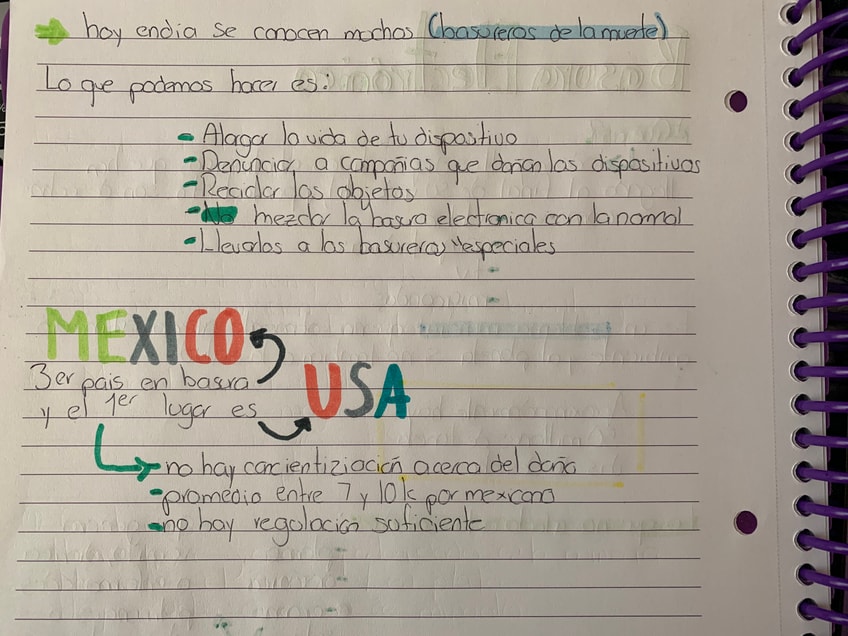 hoy endia se conocen muchos (basureros de la muerte)
Lo que podemos hacer es:
- Alagar la vida de tu dispositivo
- Denunciar a compañias que dañan los dispositivos
- Reciclar los objetos
- No mezclar la basura electronica con la normal
- Llevarlos a los basureros "especiales
MEXICO
3er pais en basura
USA
y el 1er lugar es
no hay concientiziación acerca del daño
- promedio entre 7 y 10k por mexicano
- no hay regulación suficiente